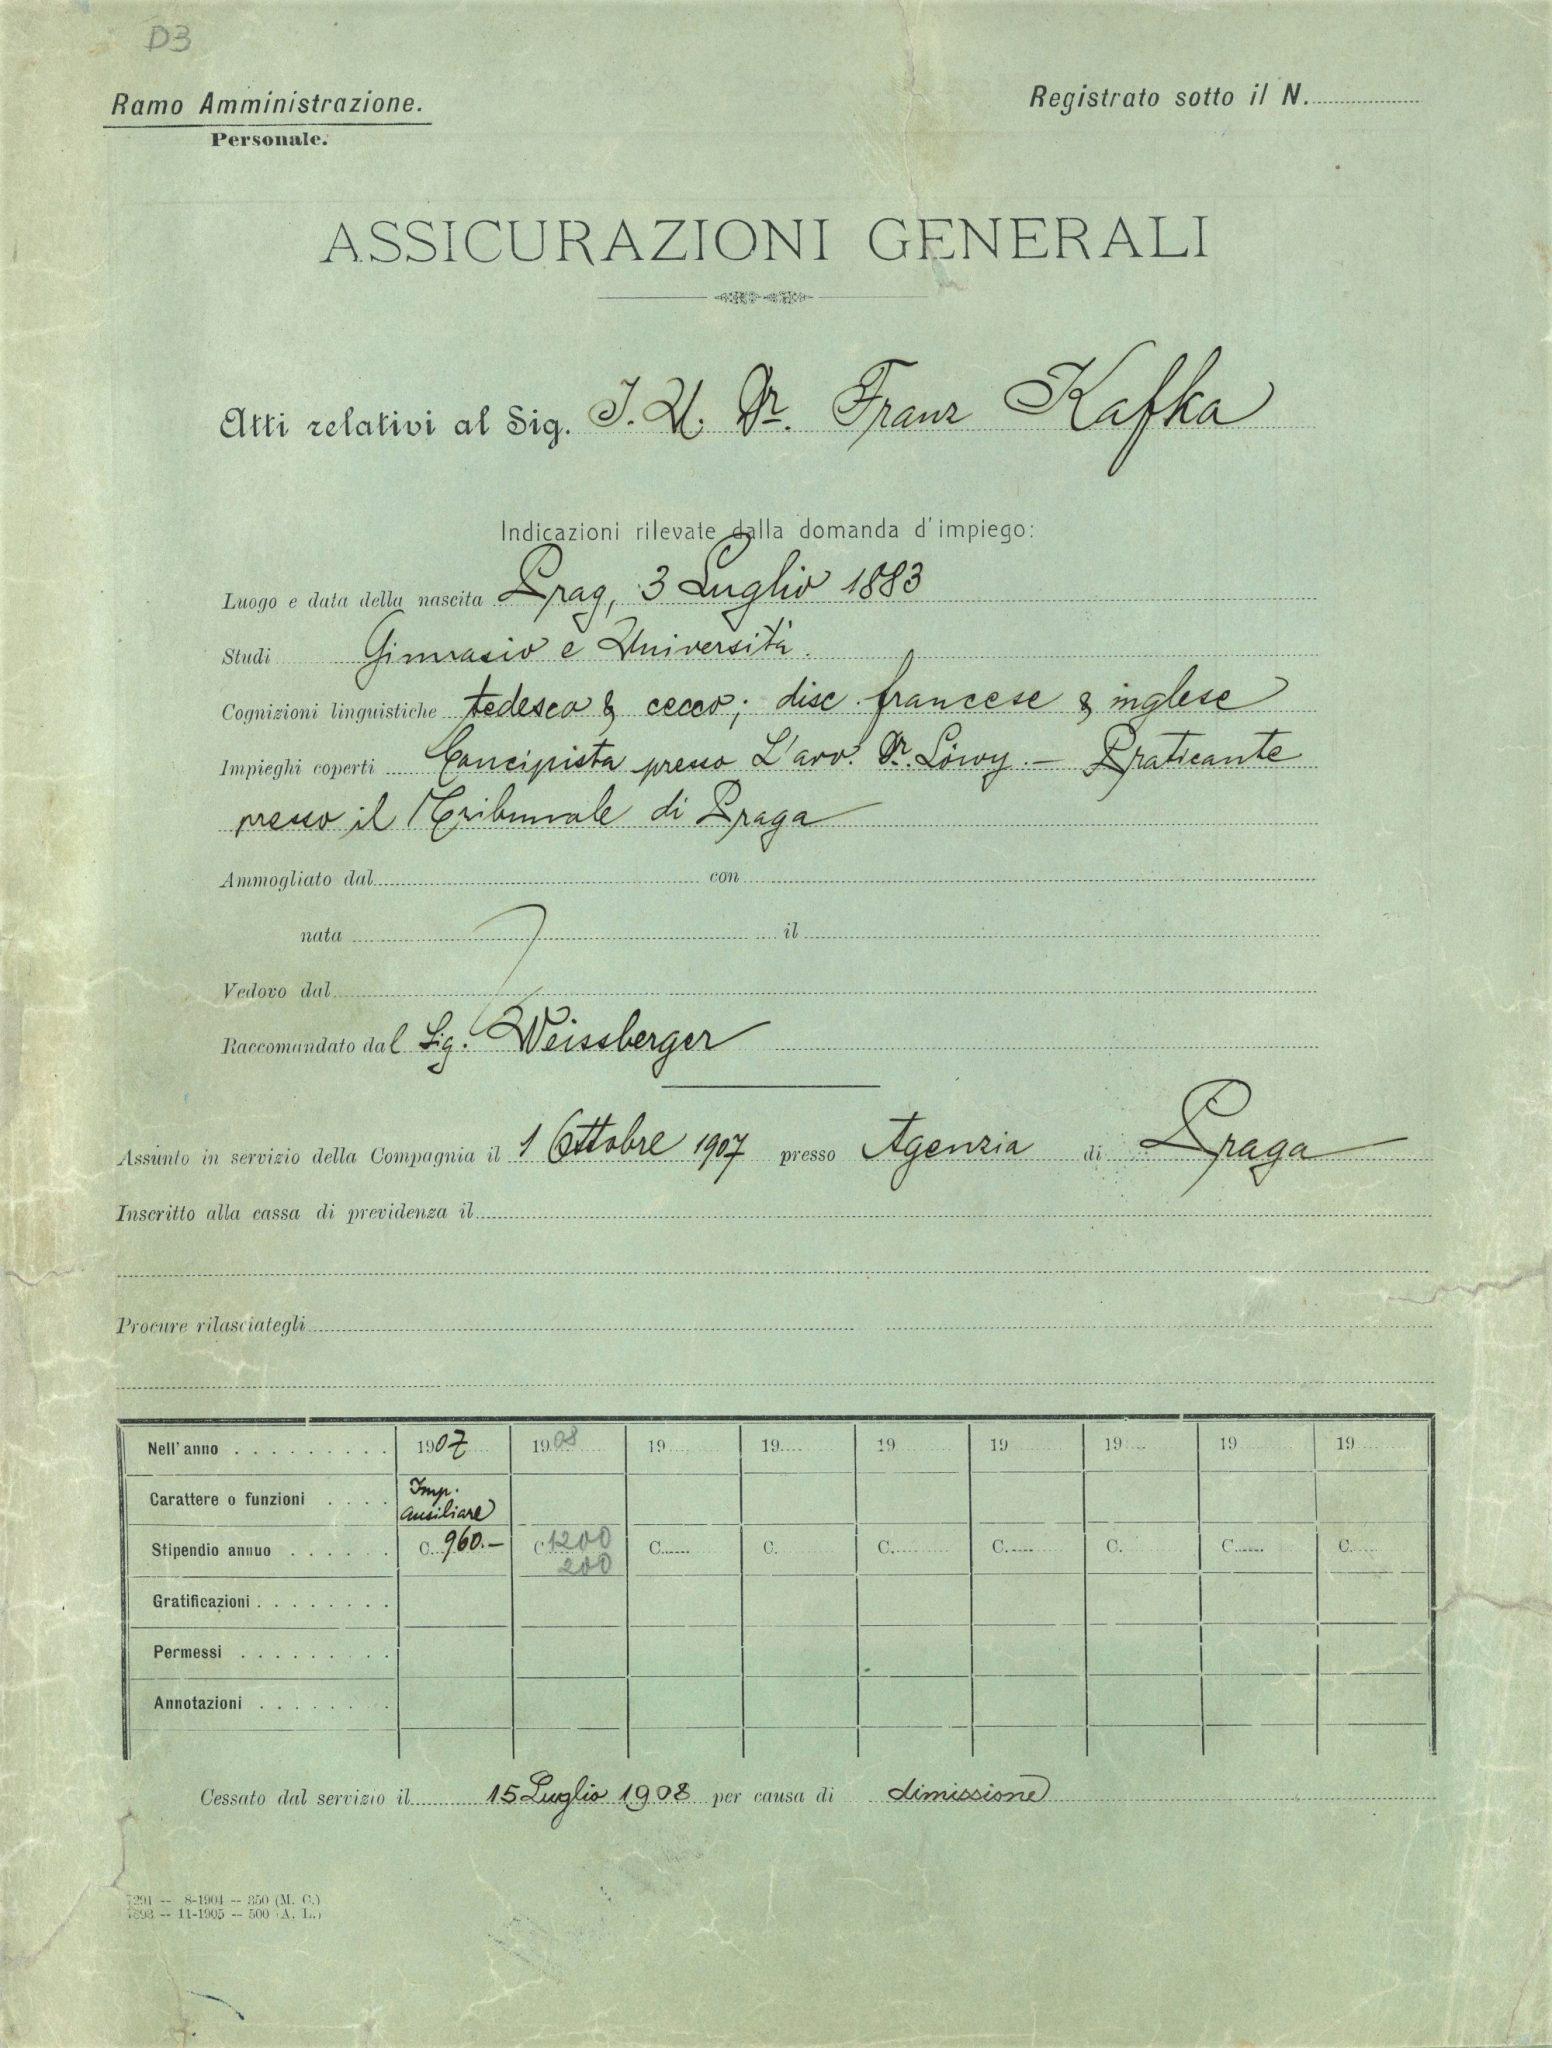 D3
Ramo Amministrazione.
Personale.
Registrato sotto il N.
ASSICURAZIONI GENERALI
Atti relativi al Sig. J. U. Dr. Franz Kafka
Indicazioni rilevate dalla domanda d'impiego:
Luogo e data della nascita Prag, 3 Luglio 1883
Studi Ginnasio e Università.
Cognizioni linguistiche tedesco & cecco; disc. francese & inglese
Impieghi coperti Concipista presso L'avv. Dr. Löwy. — Praticante
presso il Tribunale di Praga
Ammogliato dal con
nata il
Vedovo dal
Raccomandato dal Sig. Weissberger
Assunto in servizio della Compagnia il 1 Ottobre 1907 presso Agenzia di Praga
Inscritto alla cassa di previdenza il
Procure rilasciategli
Nell'anno 1907 1908 19 19 19 19 19 19 19
Carattere o funzioni Imp. ausiliare
Stipendio annuo C. 960.— C 1200 C. C. C. C. C. C. C.
200
Gratificazioni
Permessi
Annotazioni
Cessato dal servizio il 15 Luglio 1908 per causa di dimissione
7291 -- 8-1904 -- 350 (M. C.)
7893 -- 11-1905 -- 500 (A. L.)